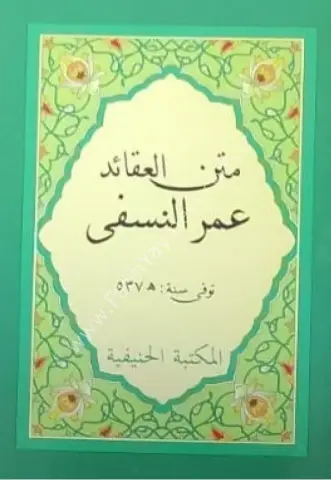 متن العقائد
عمر النسفى
توفى سنة: ٥٣٧ھ
المكتبة الحنيفية